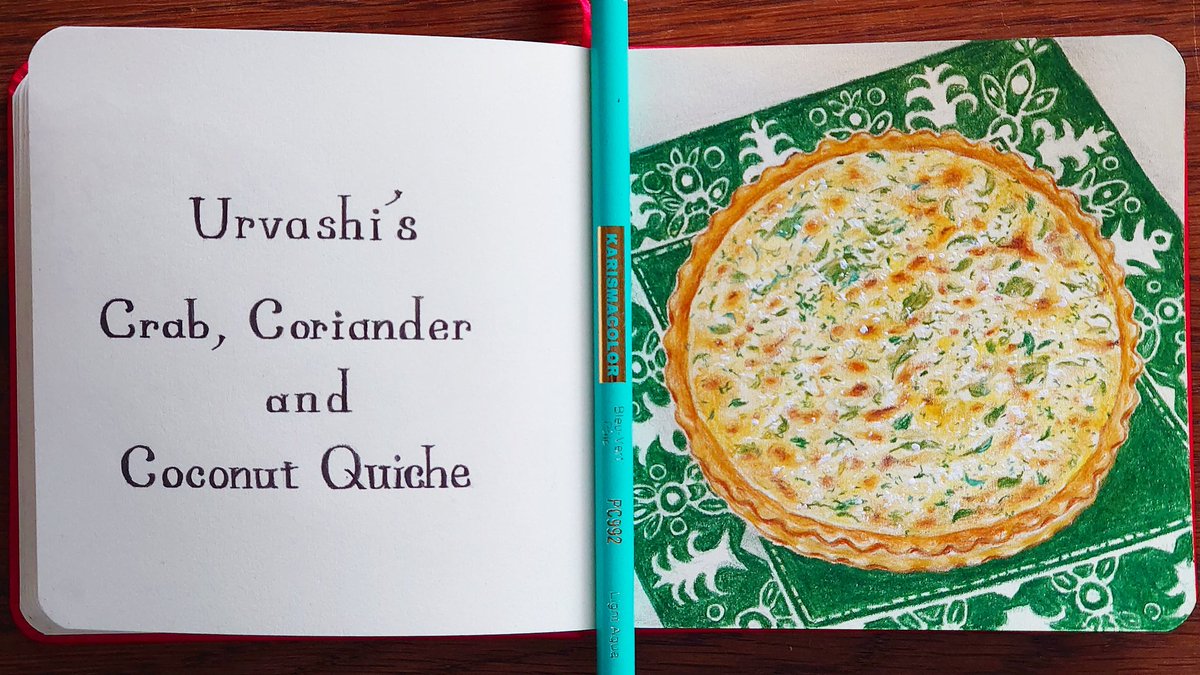 Urvashi's
Crab, Coriander
and
Coconut Quiche
KARISMACOLOR
PC992
Light Aqua